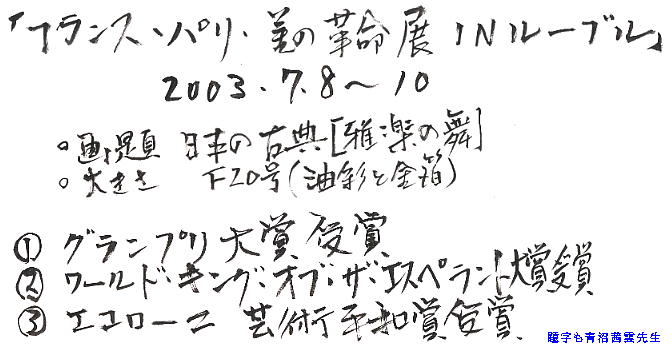 「フランス・パリ・美の革命展INルーブル」
2003.7.8～10
。画題 日本の古典[雅楽の舞]
。大きさ F20号(油彩と金箔)
① グランプリ大賞受賞
② ワールド・キング・オブ・ザ・エスペラント大賞受賞
③ エコローニ 芸術平和賞受賞
題字も青沼茜雲先生